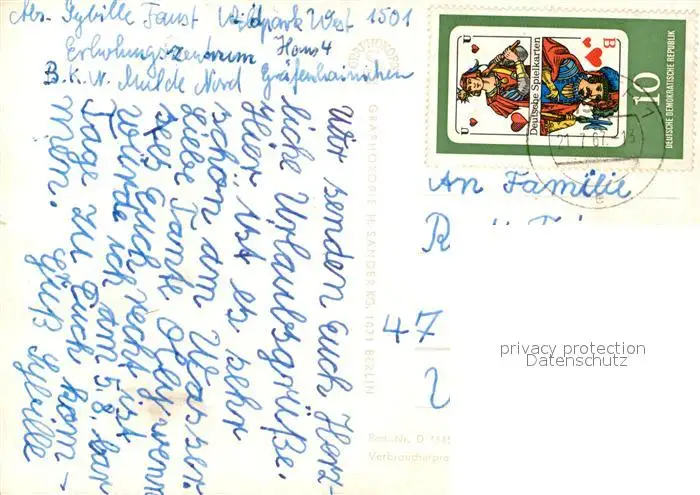 Abs. Sybille Faust Wildpark West 1501
Erholungszentrum Haus 4
B.K.W. Mulde Nord Gräfenhainichen
Wir senden Euch Herz-
liche Urlaubsgrüße.
Hier ist es sehr
schön am Wasser.
Liebe Tante Olly, wenn
es Euch recht ist
würde ich am 5.8. ein paar
Tage zu Euch kom-
men.
Gruß Sybille
GRAPHOKOPIE H. SANDER KG, 1071 BERLIN
Best.-Nr. D 1585
Verbraucherpre
Deutsche Spielkarten
U
U
B
10
DEUTSCHE DEMOKRATISCHE REPUBLIK
An Familie
47
privacy protection
Datenschutz